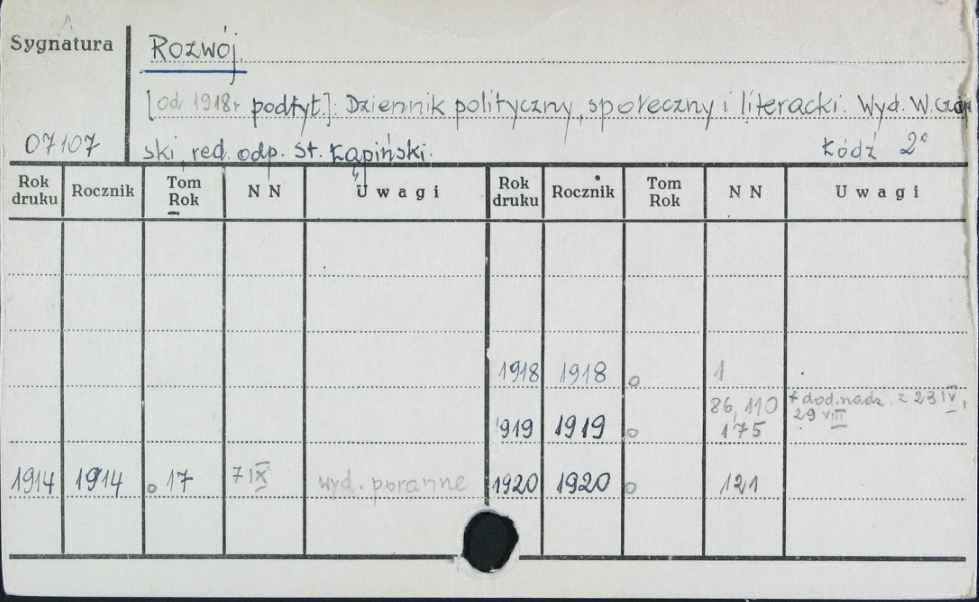 Sygnatura
Rozwój.
[od 1918r podtyt.]: Dziennik polityczny, społeczny i literacki. Wyd. W. Czaj
07107 ski, red. odp. St. Łąpiński. Łódź 2°
Rok druku Rocznik Tom Rok NN Uwagi Rok druku Rocznik Tom Rok NN Uwagi
1918 1918 o 1
86, 110 + dod. nadz. z 23 IV,
1919 1919 o 175 29 VIII
1914 1914 o 17 7 IX wyd. poranne 1920 1920 o 121